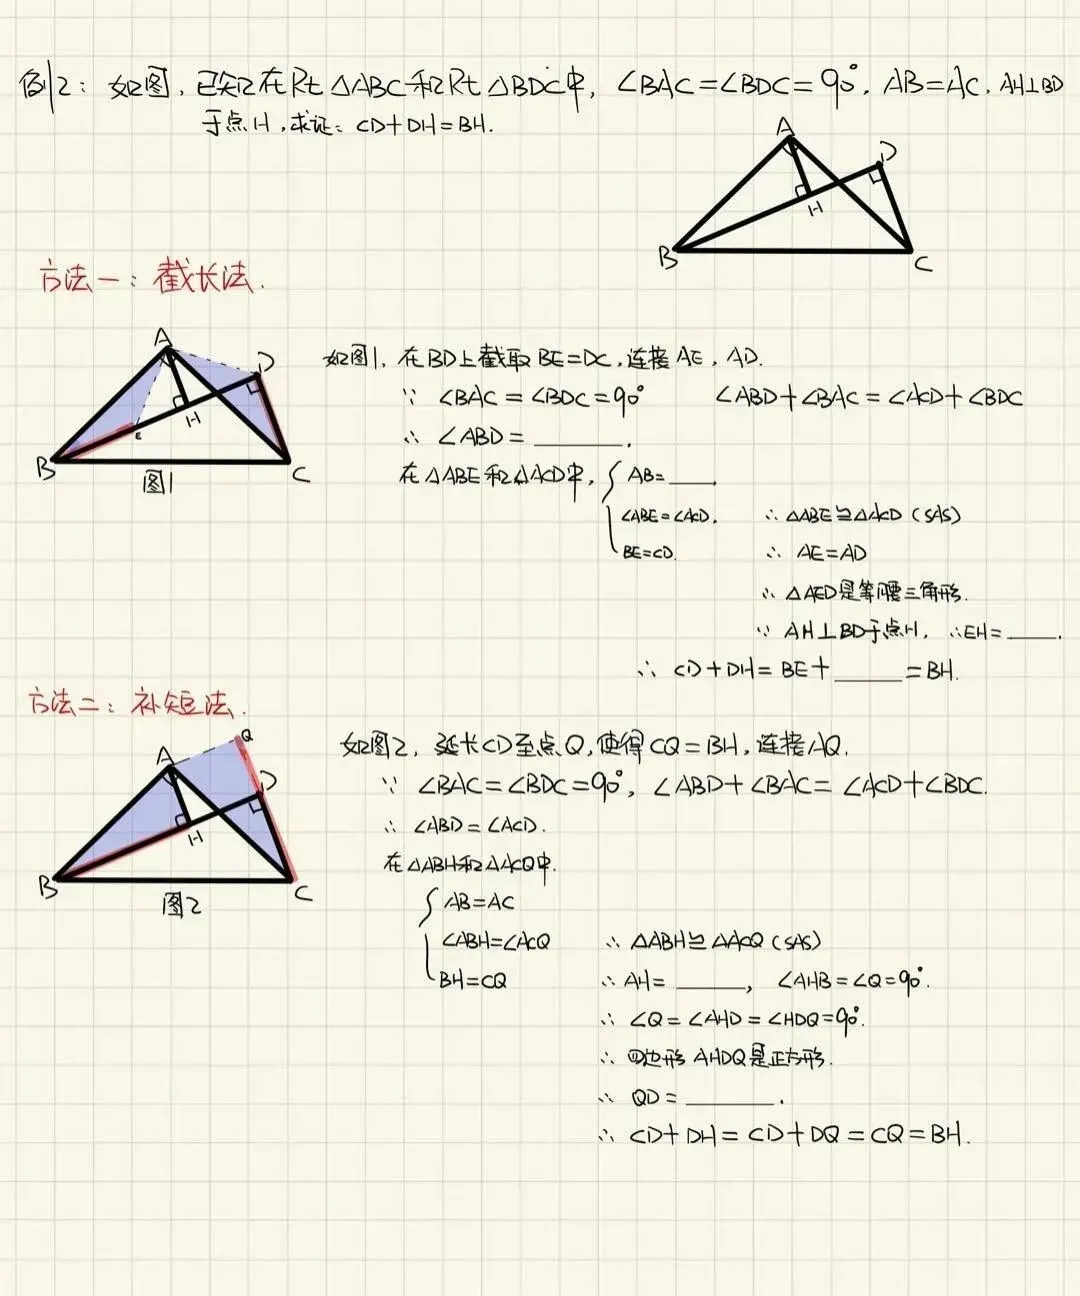 例2：如图，已知在Rt△ABC和Rt△BDC中，∠BAC=∠BDC=90°，AB=AC，AH⊥BD
于点H，求证：CD+DH=BH.
A
D
H
B
C
方法一：截长法.
A
D
H
E
B
C
图1
如图1，在BD上截取BE=DC，连接AE，AD.
∵ ∠BAC=∠BDC=90° ∠ABD+∠BAC=∠ACD+∠BDC
∴ ∠ABD=______.
在△ABE和△ACD中，{AB=____.
∠ABE=∠ACD. ∴ △ABE≌△ACD（SAS）
BE=CD. ∴ AE=AD
∴ △AED是等腰三角形.
∵ AH⊥BD于点H，∴EH=____.
∴ CD+DH=BE+____=BH.
方法二：补短法.
Q
A
D
H
B
C
图2
如图2，延长CD至点Q，使得CQ=BH，连接AQ.
∵ ∠BAC=∠BDC=90°，∠ABD+∠BAC=∠ACD+∠BDC.
∴ ∠ABD=∠ACD.
在△ABH和△ACQ中.
{AB=AC
∠ABH=∠ACQ ∴ △ABH≌△ACQ（SAS）
BH=CQ ∴ AH=____，∠AHB=∠Q=90°.
∴ ∠Q=∠AHD=∠HDQ=90°.
∴ 四边形AHDQ是正方形.
∴ QD=______.
∴ CD+DH=CD+DQ=CQ=BH.